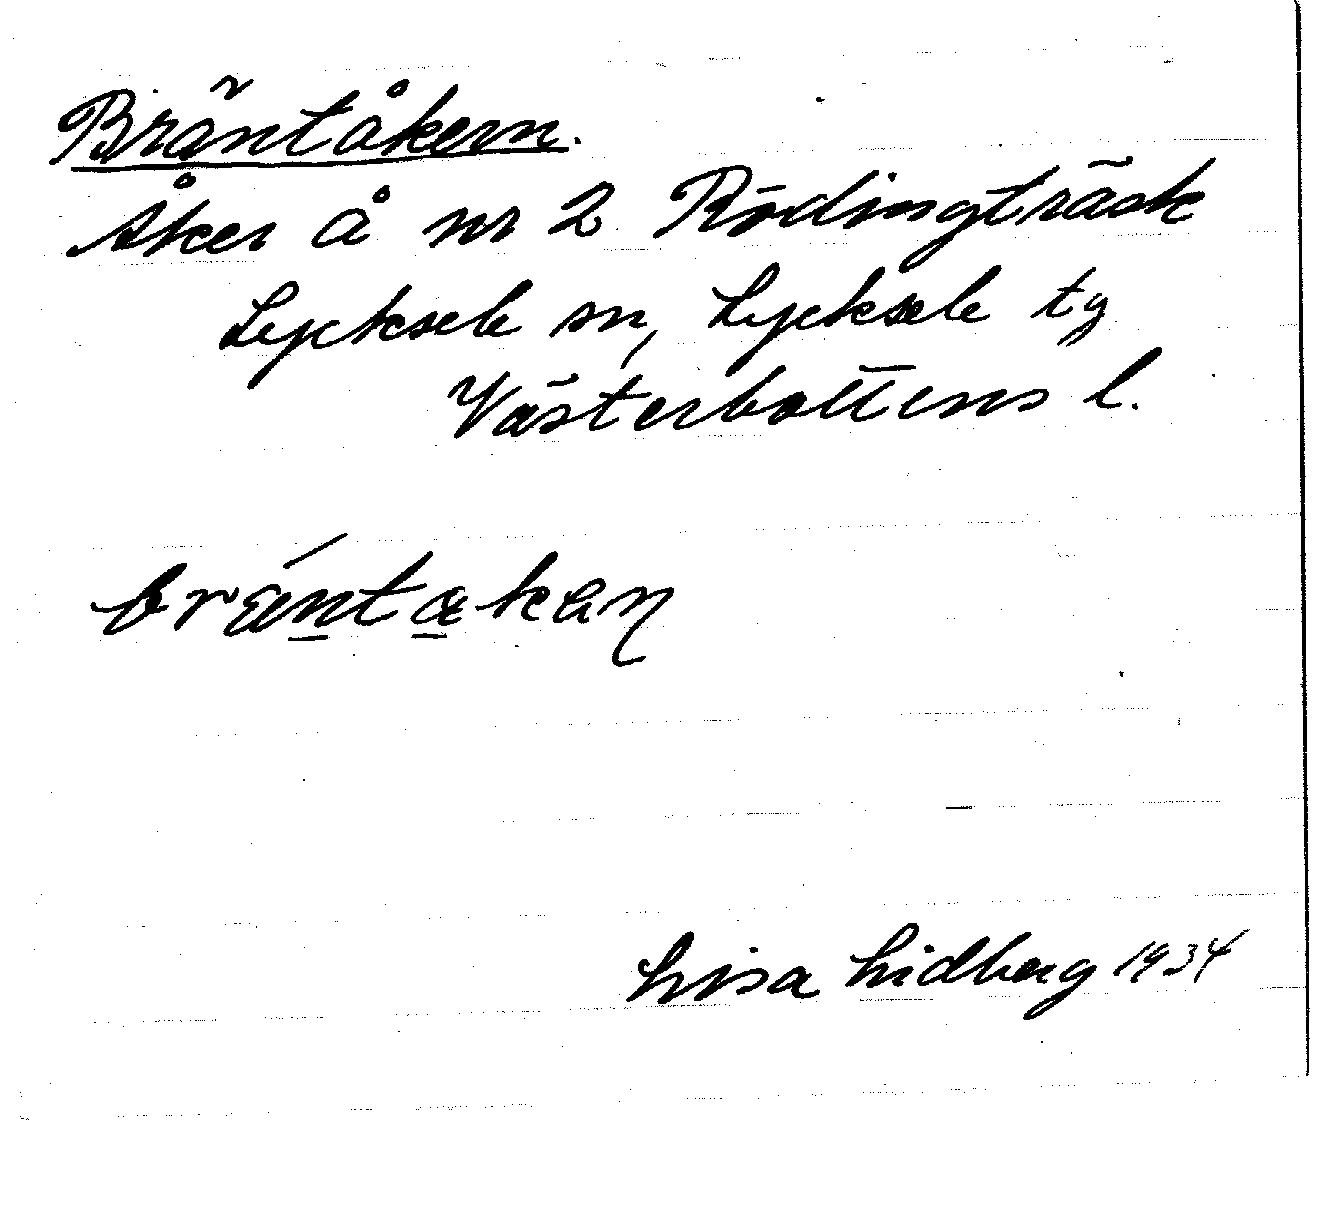 Bräntåkern.
Åker å nr 2 Rödingträsk
Lycksele sn, Lycksele tg
Västerbottens l.
bräntakan
Lisa Lidberg 1934